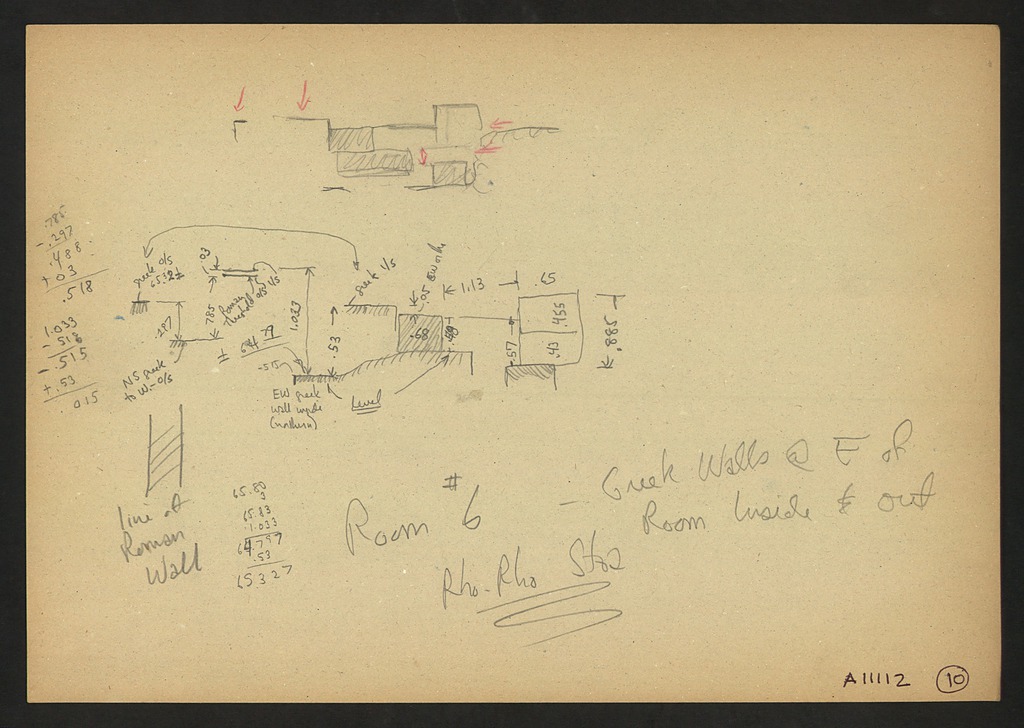 .785
- .297
.488
+ 03
.518
1.033
- .518
.515
+ .53
015
Greek o/s
65.32±
.03
Roman
threshold o/s i/s
.785
.287
1.033
Greek i/s
.53
.58
1.13
.65
.455
.43
.57
.885
NS Greek
to W. - o/s
±
64.79
-.515
EW Greek
wall inside
(northern)
Level
line of
Roman
Wall
65.80
3
65.83
1.033
64.797
.53
65327
Room #6 - Greek Walls @ E of
Room Inside & out
Rho-Rho Stoa
A11112 10